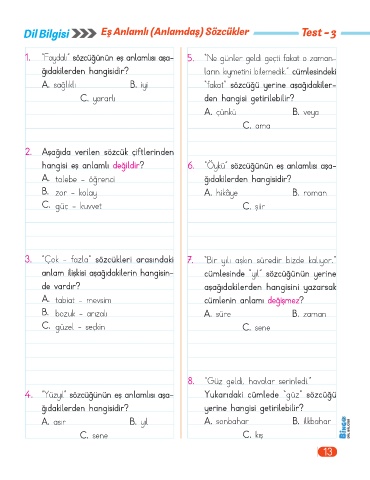 Dil Bilgisi
Eş Anlamlı (Anlamdaş) Sözcükler
Test - 3
1. "Faydalı" sözcüğünün eş anlamlısı aşa-
ğıdakilerden hangisidir?
A. sağlıklı B. iyi
C. yararlı
2. Aşağıda verilen sözcük çiftlerinden
hangisi eş anlamlı değildir?
A. talebe - öğrenci
B. zor - kolay
C. güç - kuvvet
3. "Çok - fazla" sözcükleri arasındaki
anlam ilişkisi aşağıdakilerin hangisin-
de vardır?
A. tabiat - mevsim
B. bozuk - arızalı
C. güzel - seçkin
4. "Yüzyıl" sözcüğünün eş anlamlısı aşa-
ğıdakilerden hangisidir?
A. asır B. yıl
C. sene
5. "Ne günler geldi geçti fakat o zaman-
ların kıymetini bilemedik." cümlesindeki
"fakat" sözcüğü yerine aşağıdakiler-
den hangisi getirilebilir?
A. çünkü B. veya
C. ama
6. "Öykü" sözcüğünün eş anlamlısı aşa-
ğıdakilerden hangisidir?
A. hikâye B. roman
C. şiir
7. "Bir yılı aşkın süredir bizde kalıyor."
cümlesinde "yıl" sözcüğünün yerine
aşağıdakilerden hangisini yazarsak
cümlenin anlamı değişmez?
A. süre B. zaman
C. sene
8. "Güz geldi, havalar serinledi."
Yukarıdaki cümlede "güz" sözcüğü
yerine hangisi getirilebilir?
A. sonbahar B. ilkbahar
C. kış
13